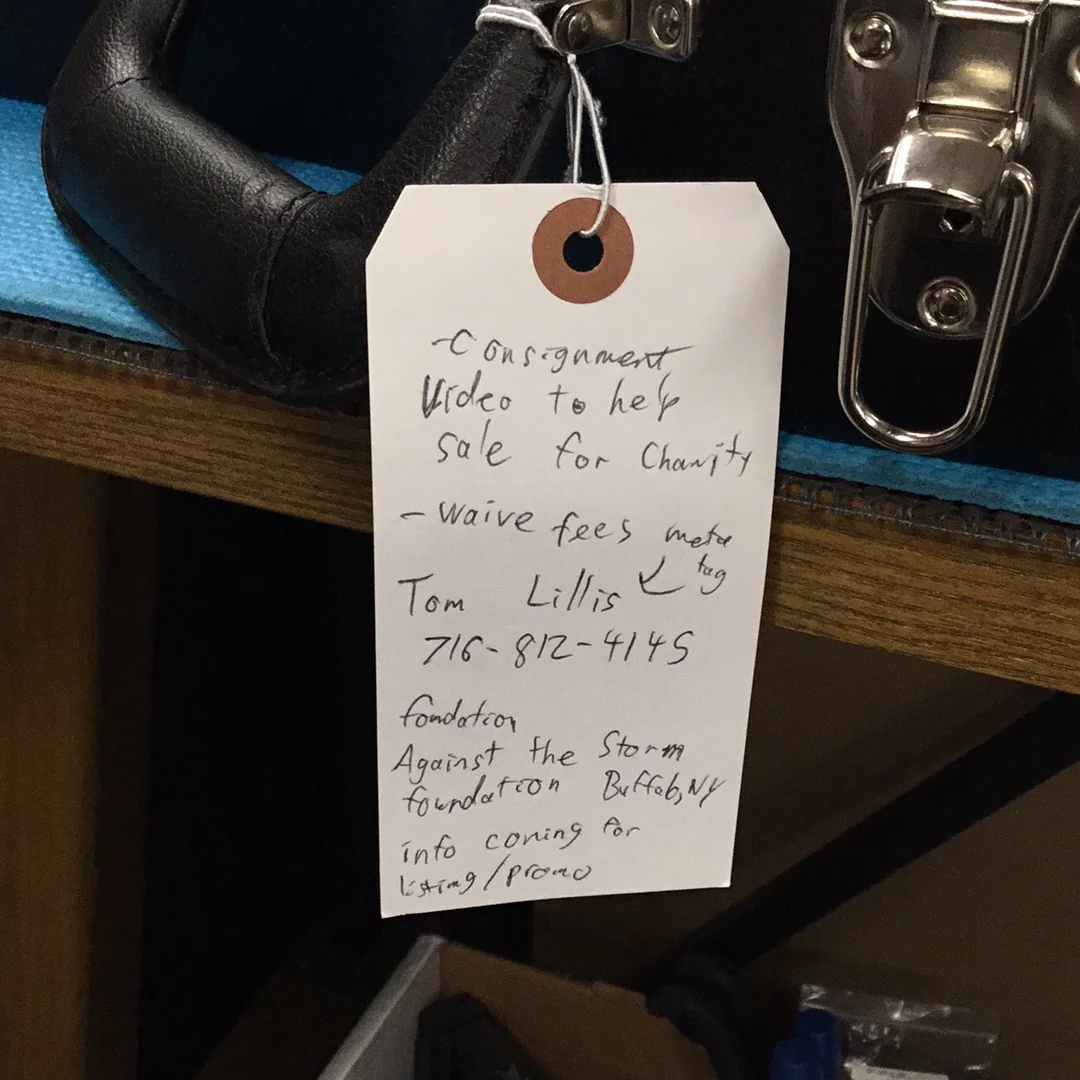 - Consignment
Video to help
sale for Charity
- waive fees meta
tag
Tom Lillis
716-812-4145
foundation
Against the Storm
foundation Buffalo, NY
info coming for
listing/promo